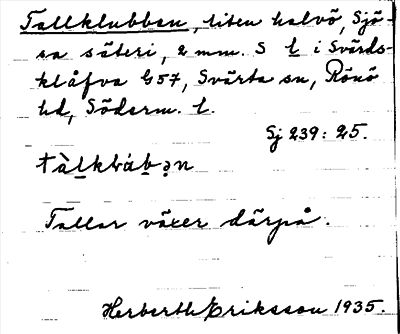 Tallklubben, liten halvö, Sjö-
sa säteri, 2 mm. S l i Svärds-
klåfva G57, Svärta sn, Rönö
hd, Söderm. l.
Sj 239: 25.
Tallar växer därpå.
Herberth Eriksson 1935.